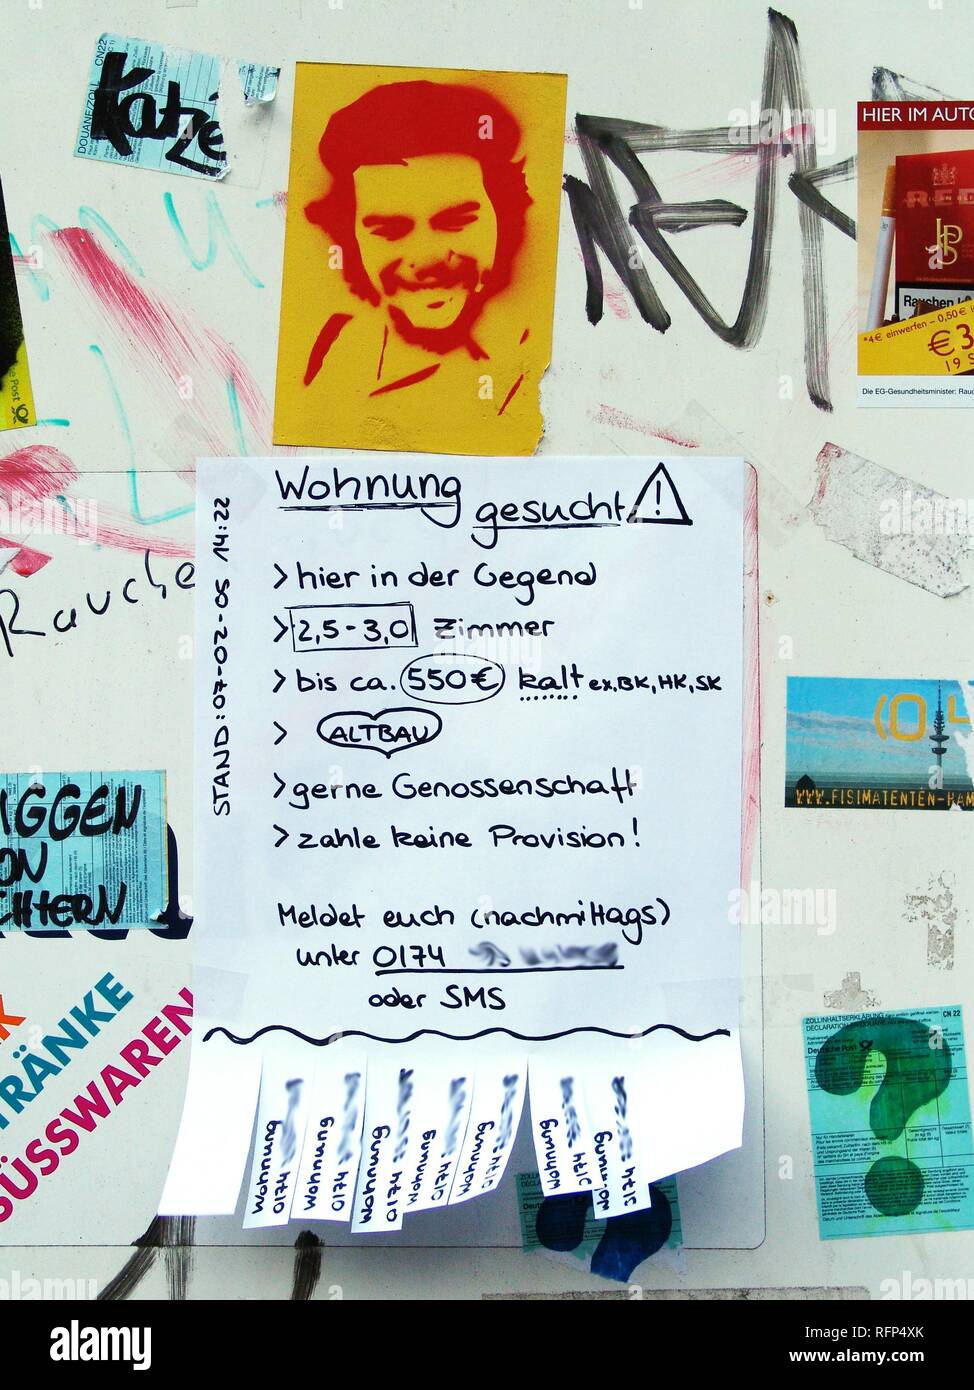 DOUANE/ZOLL
CN22
Katze
HIER IM AUTO
RED
AMERICAN BLEND
Rauchen k
*4€ einwerfen - 0,50€
€3
19 S
Die EG-Gesundheitsminister: Rauc
Post
Wohnung
gesucht
!
STAND: 07-02-05 14:22
> hier in der Gegend
> 2,5-3,0 Zimmer
> bis ca. 550€ kalt ex. BK, HK, SK
> ALTBAU
> gerne Genossenschaft
> zahle keine Provision!
Meldet euch (nachmittags)
unter 0174
oder SMS
Wohnung
0174
Wohnung
0174
Wohnung
0174
Wohnung
0174
Wohnung
0174
Wohnung
0174
Wohnung
0174
Rauche
(O
WWW.FISIMATENTEN-HAM
IGGEN
ON
CHTERN
K
TRÄNKE
SÜSSWAREN
ZOLLINHALTSERKLÄRUNG
CN 22
DÉCLARATION EN DOUANE
Deutsche Post
?
alamy
alamy
Image ID: RFP4XK
www.alamy.com